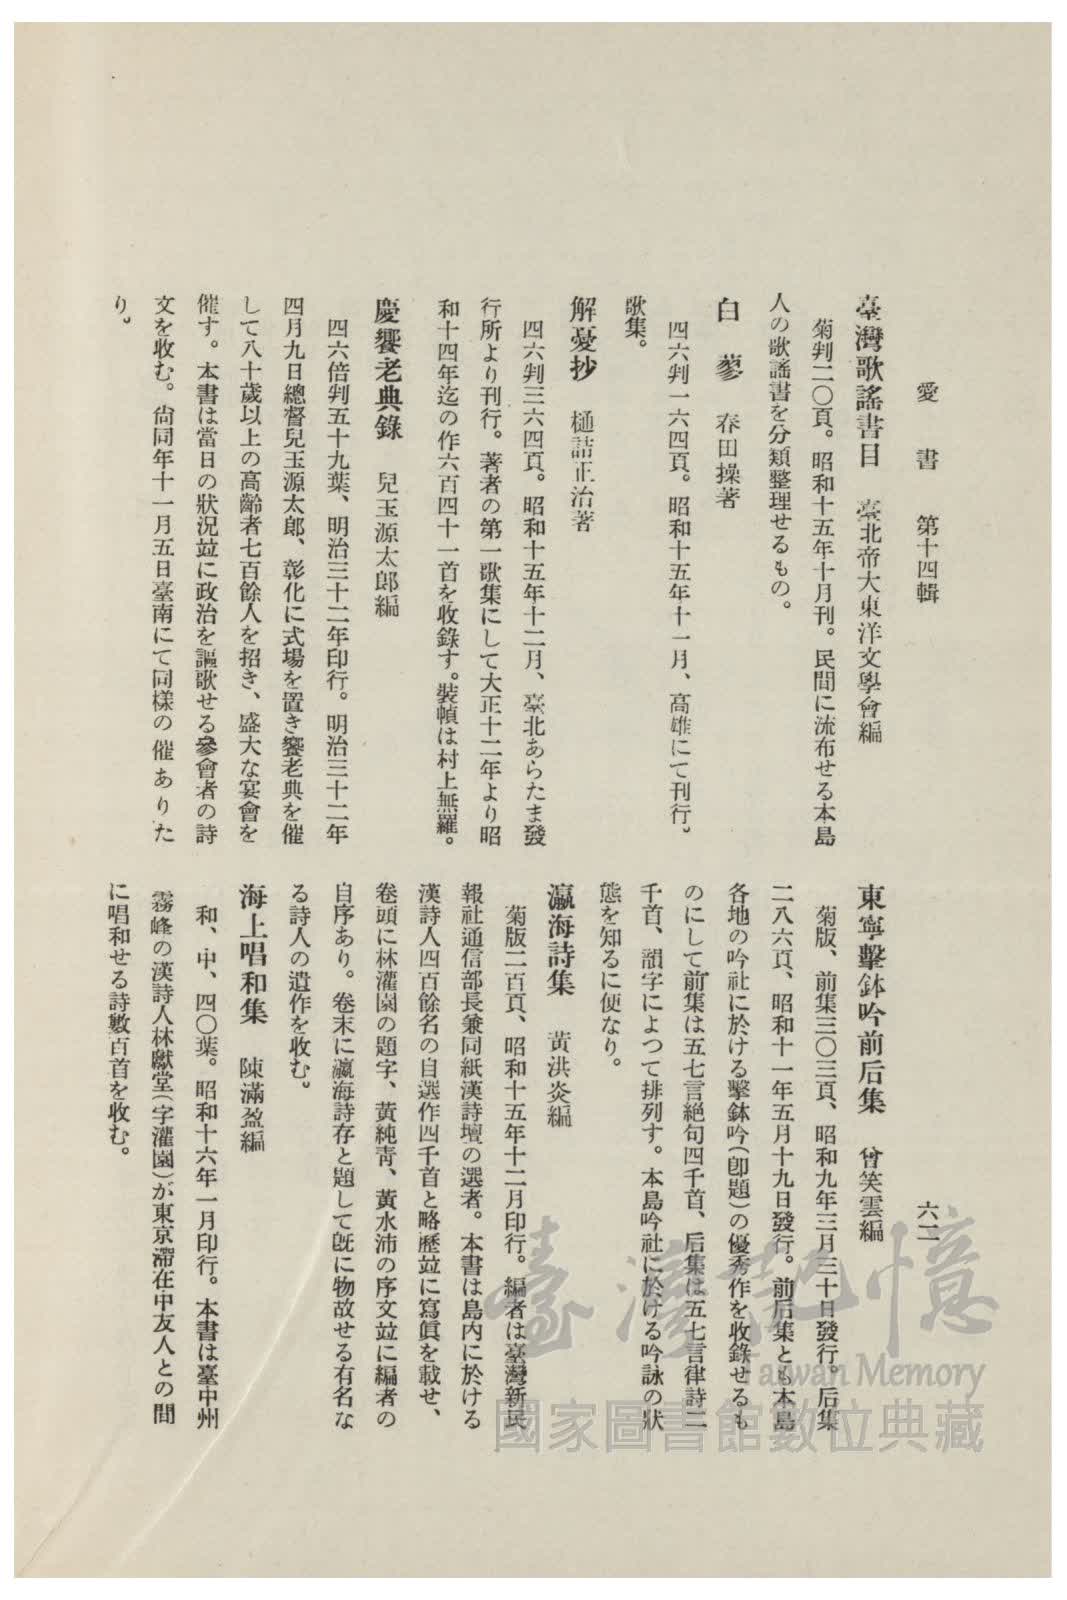 愛書　第十四輯
六二
臺灣歌謠書目　臺北帝大東洋文學會編
菊判二〇頁。昭和十五年十月刊。民間に流布せる本島
人の歌謠書を分類整理せるもの。
白蓼　春田操著
四六判一六四頁。昭和十五年十一月、高雄にて刊行。
歌集。
解憂抄　樋詰正治著
四六判三六四頁。昭和十五年十二月、臺北あらたま發
行所より刊行。著者の第一歌集にして大正十二年より昭
和十四年迄の作六百四十一首を收錄す。裝幀は村上無羅。
慶饗老典錄　兒玉源太郎編
四六倍判五十九葉、明治三十二年印行。明治三十二年
四月九日總督兒玉源太郎、彰化に式場を置き饗老典を催
して八十歲以上の高齡者七百餘人を招き、盛大な宴會を
催す。本書は當日の狀況竝に政治を謳歌せる參會者の詩
文を收む。尙同年十一月五日臺南にて同樣の催ありた
り。
東寧擊鉢吟前后集　曾笑雲編
菊版、前集三〇三頁、昭和九年三月三十日發行。后集
二八六頁、昭和十一年五月十九日發行。前后集とも本島
各地の吟社に於ける擊鉢吟（卽題）の優秀作を收錄せるも
のにして前集は五七言絕句四千首、后集は五七言律詩二
千首、韻字によつて排列す。本島吟社に於ける吟詠の狀
態を知るに便なり。
瀛海詩集　黃洪炎編
菊版二百頁、昭和十五年十二月印行。編者は臺灣新民
報社通信部長兼同紙漢詩壇の選者。本書は島內に於ける
漢詩人四百餘名の自選作四千首と略歷竝に寫眞を載せ、
卷頭に林灌園の題字、黃純靑、黃水沛の序文竝に編者の
自序あり。卷末に瀛海詩存と題して旣に物故せる有名な
る詩人の遺作を收む。
海上唱和集　陳滿盈編
和、中、四〇葉。昭和十六年一月印行。本書は臺中州
霧峰の漢詩人林獻堂（字灌園）が東京滯在中友人との間
に唱和せる詩數百首を收む。
臺灣記憶
Taiwan Memory
國家圖書館數位典藏